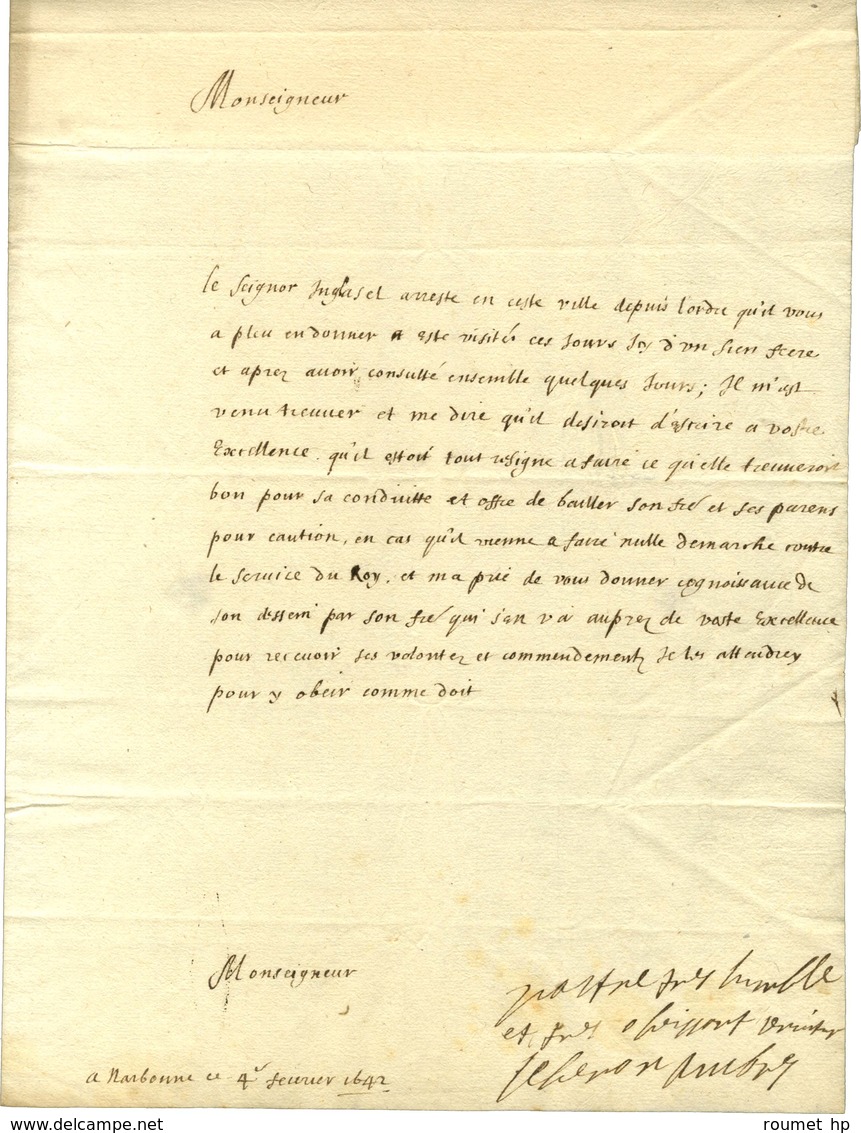 Monseigneur
le seignor Inglasel arreste en ceste ville depuis l'ordre qu'il vous
a pleu en donner a este visité ces Jours Icy d'vn sien frere
et aprez avoir consulté ensemble quelques Jours; Il m'est
venu treuuer et me dire qu'il desiroit d'escrire a vostre
Excellence qu'il estoit tout resigne a faire ce qu'elle treuueroit
bon pour sa conduitte et offre de bailler son fré et ses parens
pour caution, en cas qu'il vienne a faire nulle demarche contre
le service du Roy, et ma prié de vous donner cognoissance de
son dessein par son fré qui s'en va auprez de vostre Excellence
pour receuoir ses volontez et commendementz Je les attendrey
pour y obeir comme doit
Monseigneur
vostre tres humble
et tres obeissant
a Narbonne ce 4e feurier 1642
roumet hp